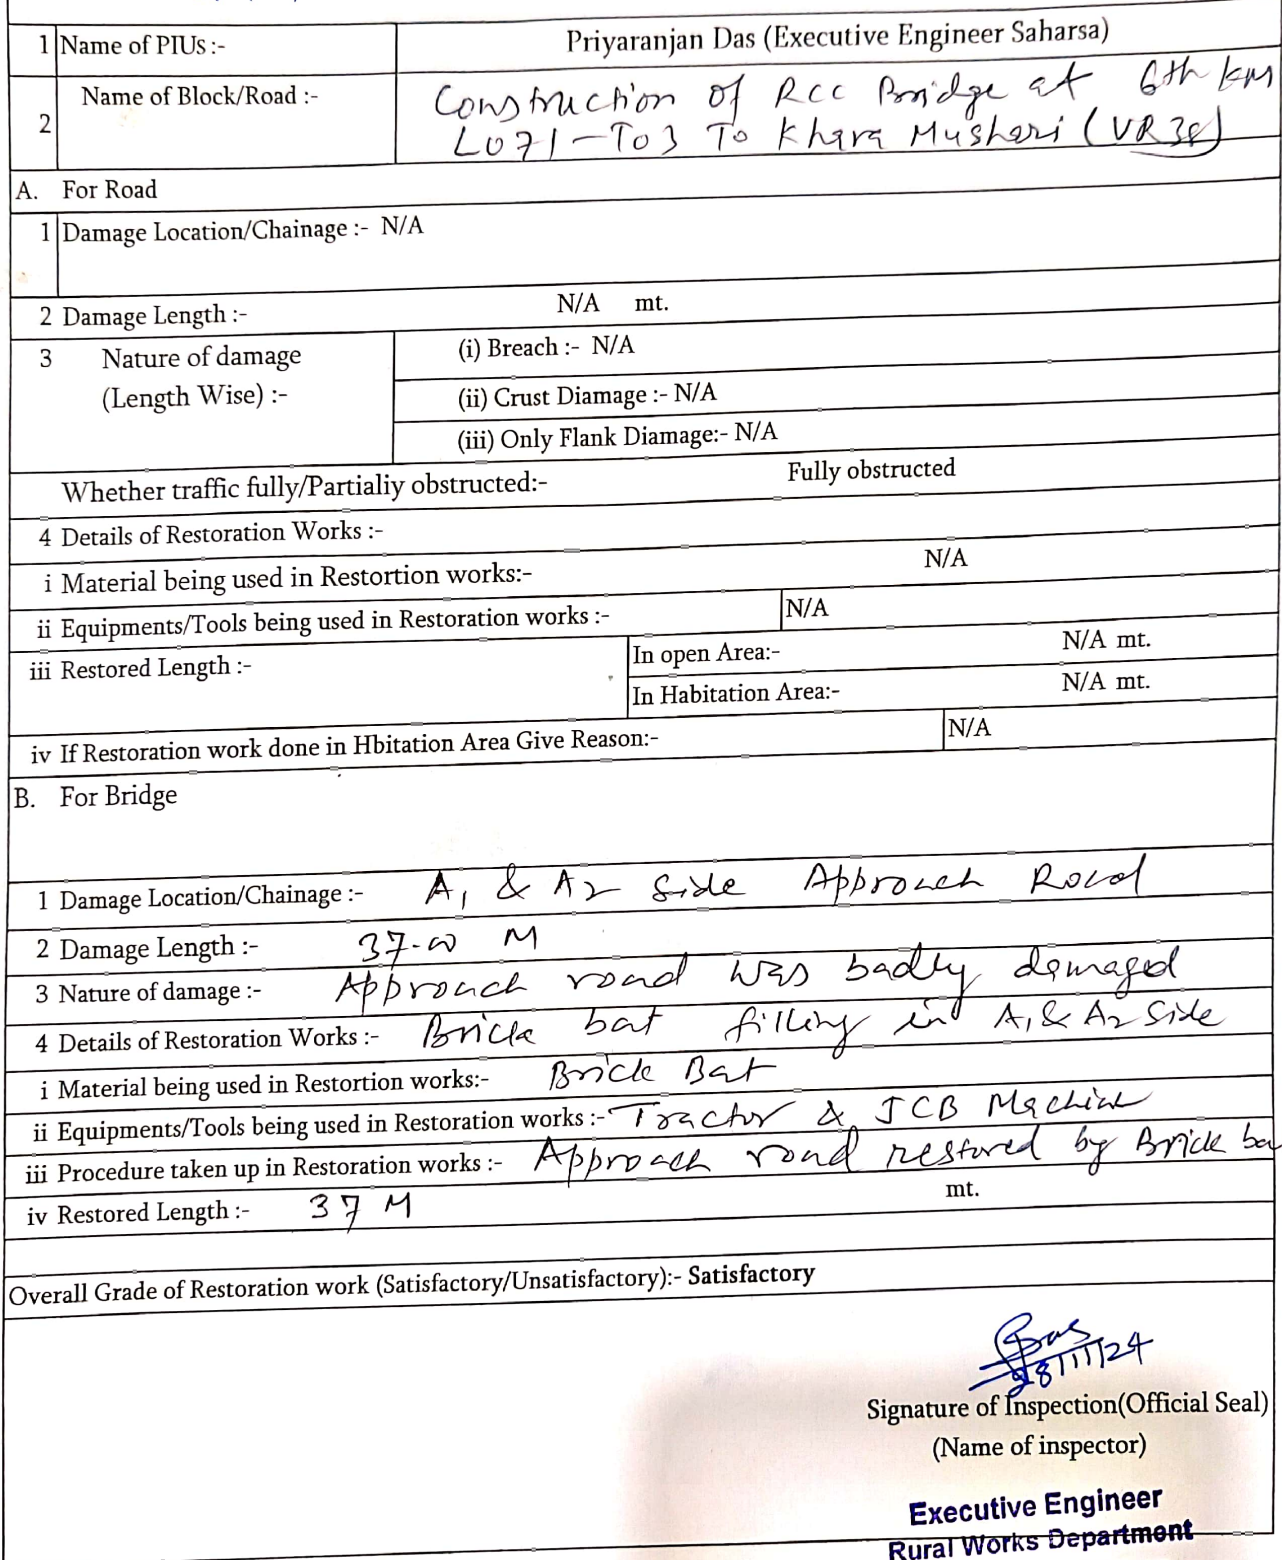 1 Name of PIUs :- Priyaranjan Das (Executive Engineer Saharsa)
2 Name of Block/Road :- Construction of RCC Bridge at 6th km
L071-T03 To Khara Mushari (VR38)
A. For Road
1 Damage Location/Chainage :- N/A
2 Damage Length :- N/A mt.
3 Nature of damage (i) Breach :- N/A
(Length Wise) :- (ii) Crust Diamage :- N/A
(iii) Only Flank Diamage:- N/A
Whether traffic fully/Partialiy obstructed:- Fully obstructed
4 Details of Restoration Works :-
i Material being used in Restortion works:- N/A
ii Equipments/Tools being used in Restoration works :- N/A
iii Restored Length :- In open Area:- N/A mt.
In Habitation Area:- N/A mt.
iv If Restoration work done in Hbitation Area Give Reason:- N/A
B. For Bridge
1 Damage Location/Chainage :- A1 & A2 side Approach Road
2 Damage Length :- 37-00 M
3 Nature of damage :- Approach road was badly damaged
4 Details of Restoration Works :- Brick bat filling in A1 & A2 Side
i Material being used in Restortion works:- Brick Bat
ii Equipments/Tools being used in Restoration works :- Tractor & JCB Machine
iii Procedure taken up in Restoration works :- Approach road restored by Brick ba
iv Restored Length :- 37 M mt.
Overall Grade of Restoration work (Satisfactory/Unsatisfactory):- Satisfactory
28/11/24
Signature of Inspection(Official Seal)
(Name of inspector)
Executive Engineer
Rural Works Department